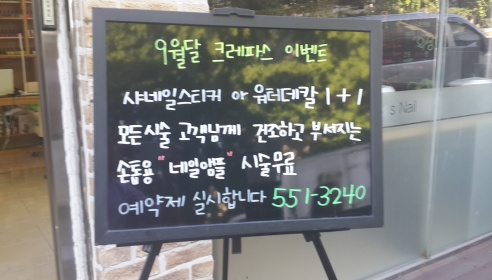 9월달 크레파스 이벤트
샤네일스티커 or 워터데칼 1+1
모든시술 고객님께 건조하고 부서지는
손톱용 "네일앰플" 시술무료
예약제 실시합니다 551-3240
s Nail